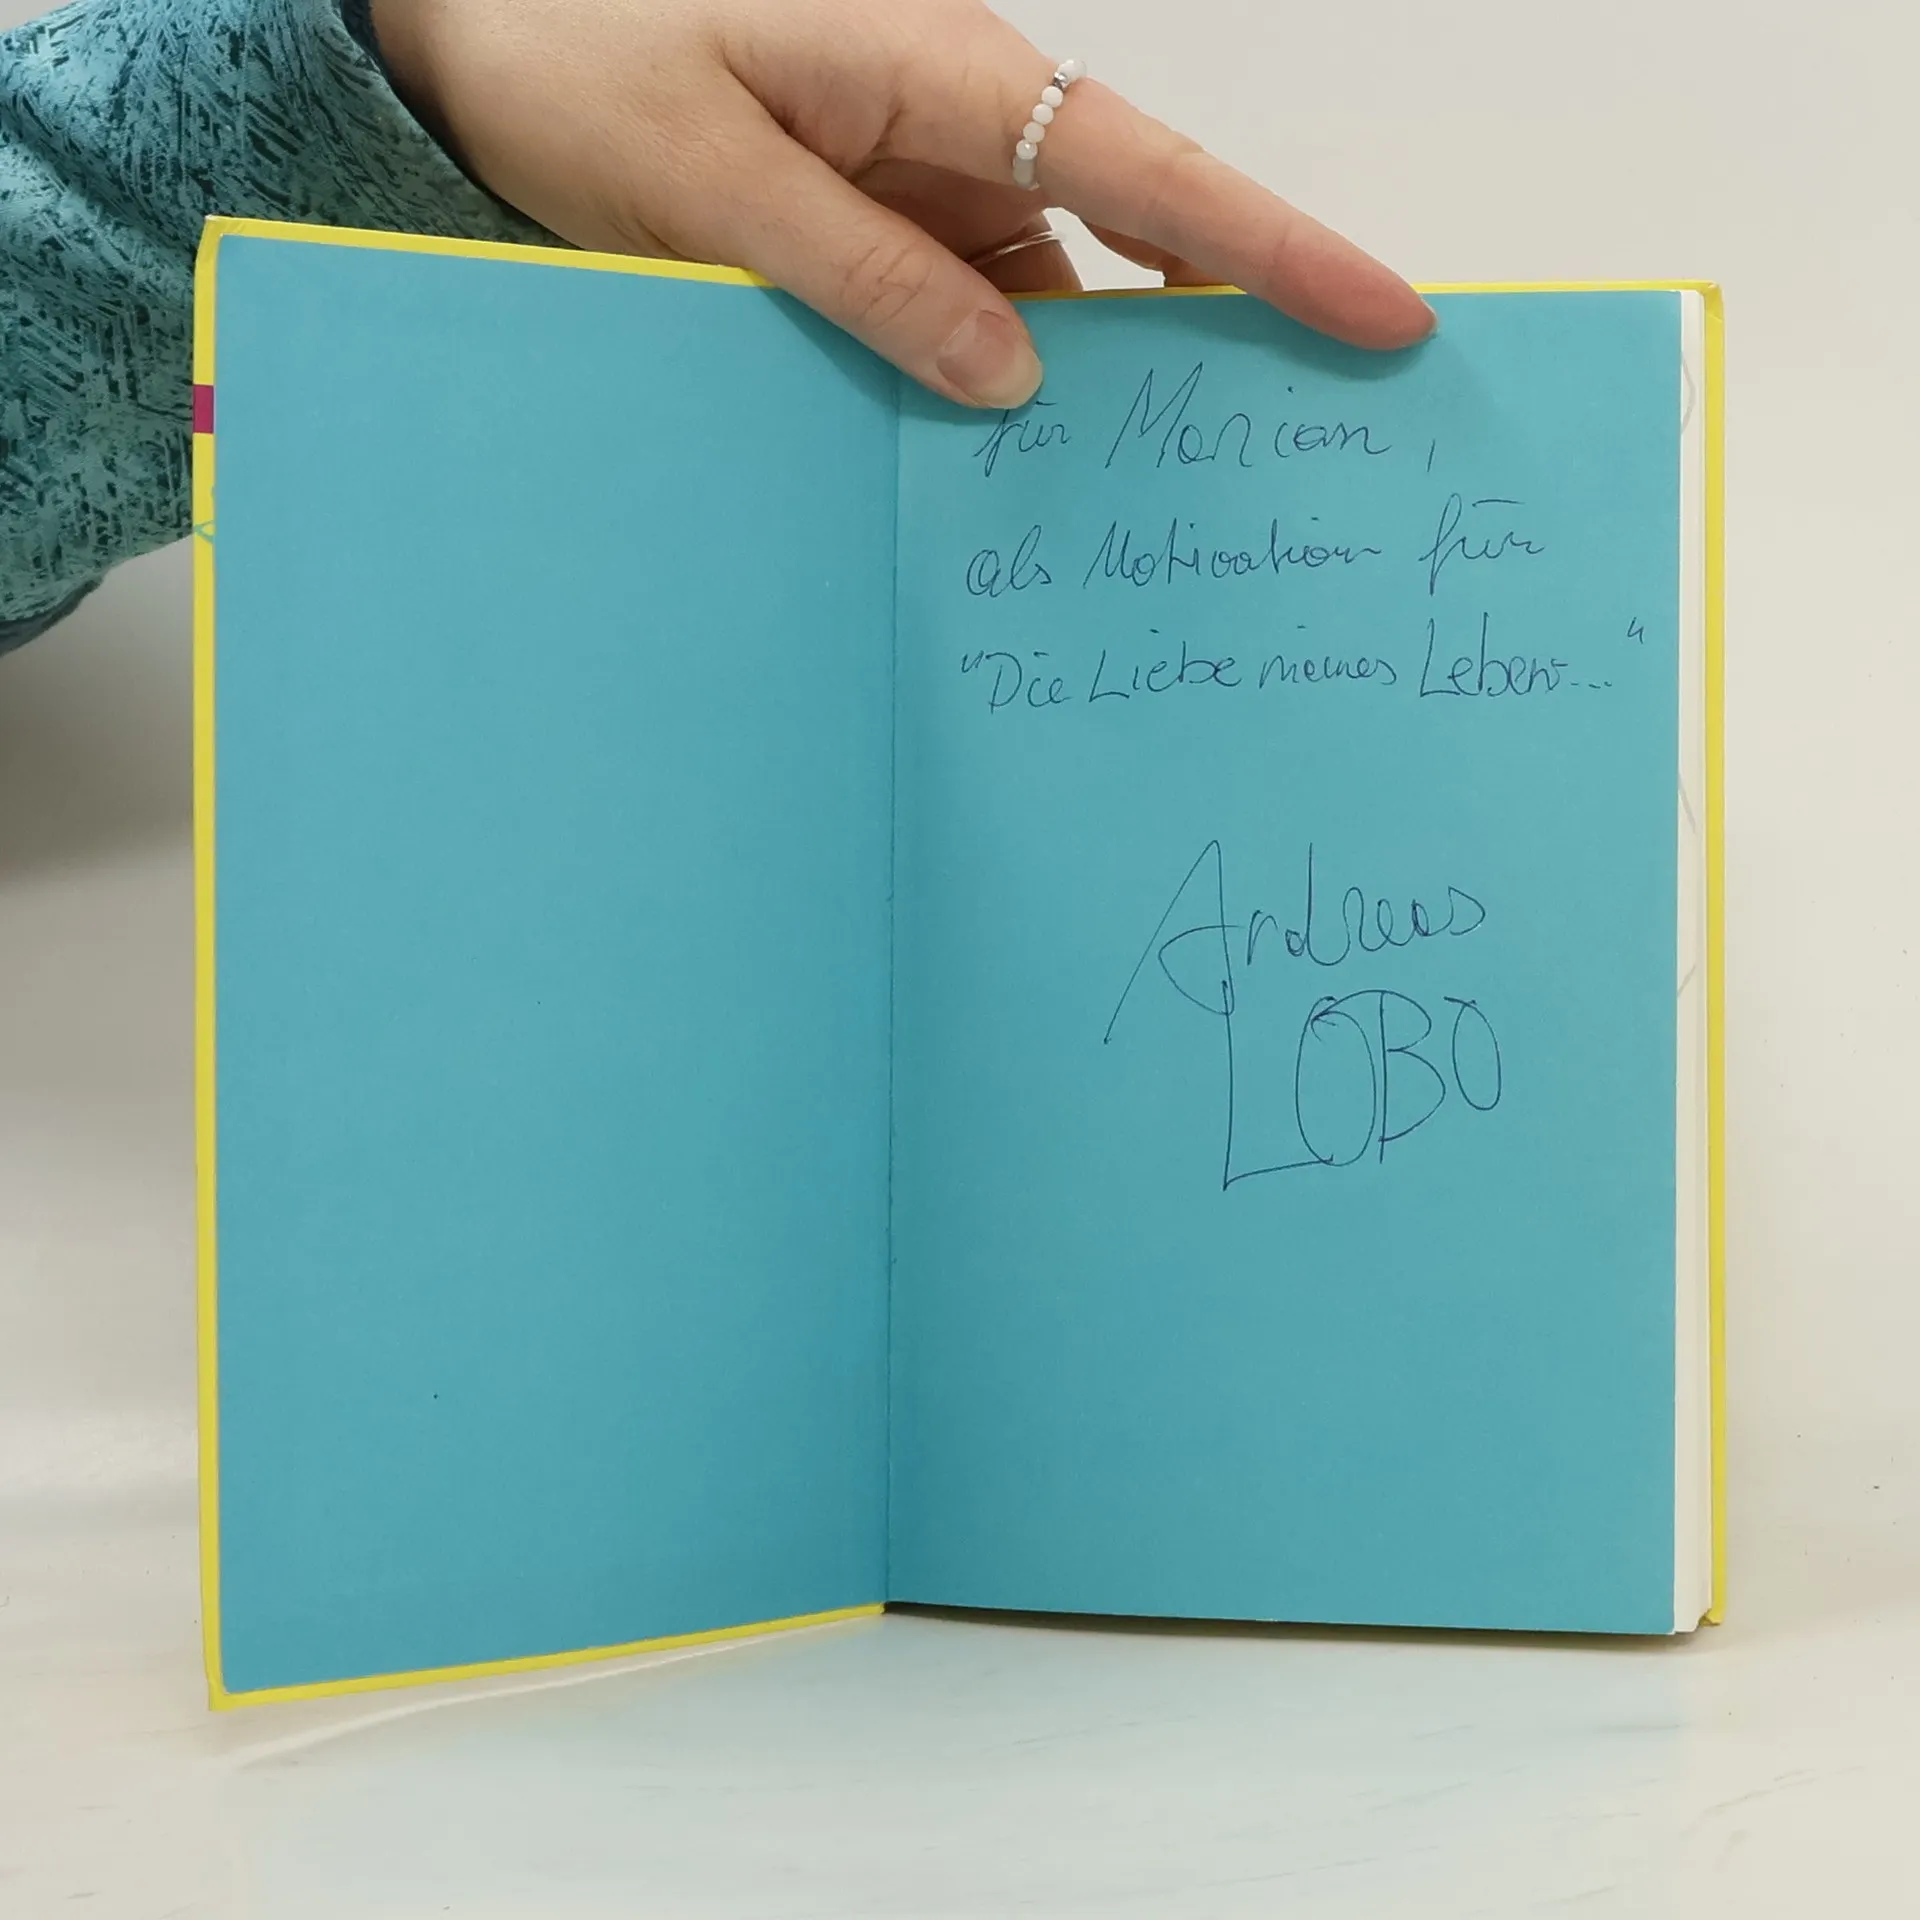 für Marian,
als Motivation für
"Die Liebe meines Lebens..."
Andreas
LOBO